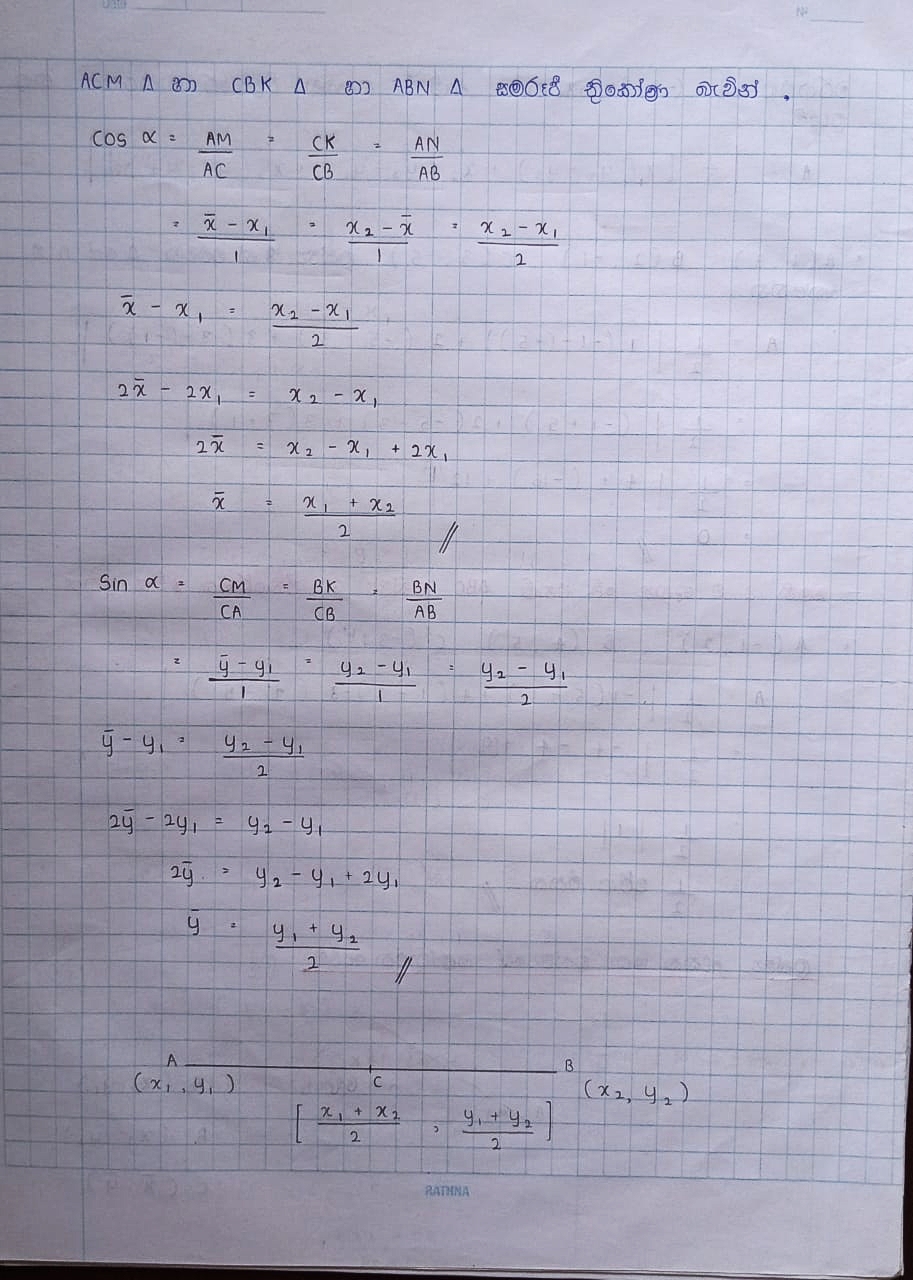 Date
No
ACM Δ හා CBK Δ හා ABN Δ සමරූපී ත්‍රිකෝණ බැවින් .
cos α = AM/AC = CK/CB = AN/AB
= x̄ - x₁/1 = x₂ - x̄/1 = x₂ - x₁/2
x̄ - x₁ = x₂ - x₁/2
2x̄ - 2x₁ = x₂ - x₁
2x̄ = x₂ - x₁ + 2x₁
x̄ = x₁ + x₂/2 //
Sin α = CM/CA = BK/CB = BN/AB
= ȳ - y₁/1 = y₂ - y₁/1 = y₂ - y₁/2
ȳ - y₁ = y₂ - y₁/2
2ȳ - 2y₁ = y₂ - y₁
2ȳ = y₂ - y₁ + 2y₁
ȳ = y₁ + y₂/2 //
A B
(x₁, y₁) C (x₂, y₂)
[x₁ + x₂/2 , y₁ + y₂/2]
RATHNA